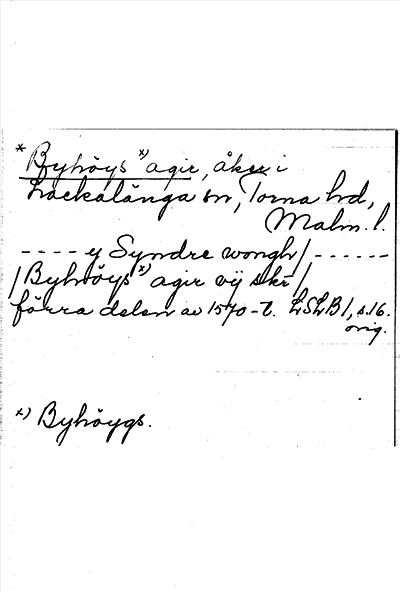 * Byhöys x) agir, åker i
Lackalänga sn, Torna hd,
Malm. l.
---- ij Syndre wongh / ------
/ Byhöys x) agir vij skr /
förra delen av 1570-t. LSLB 1, s. 16.
orig.
x) Byhöygs.